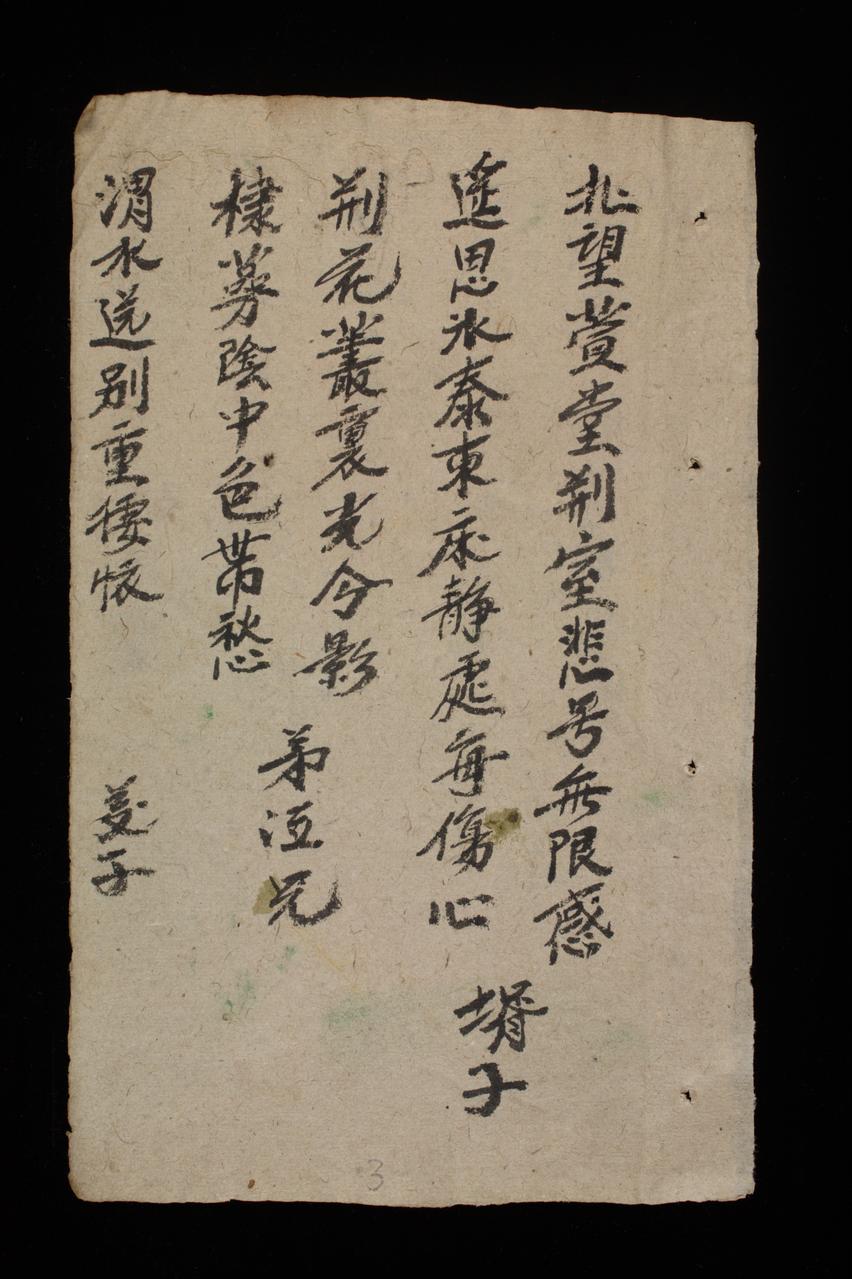 北望萱堂荆室悲号無限感
遥思氷泰東床静處每傷心
壻子
荆花叢裏光今影
棣萼陰中色帶愁
弟泣兄
渭水送別重悽怀
3